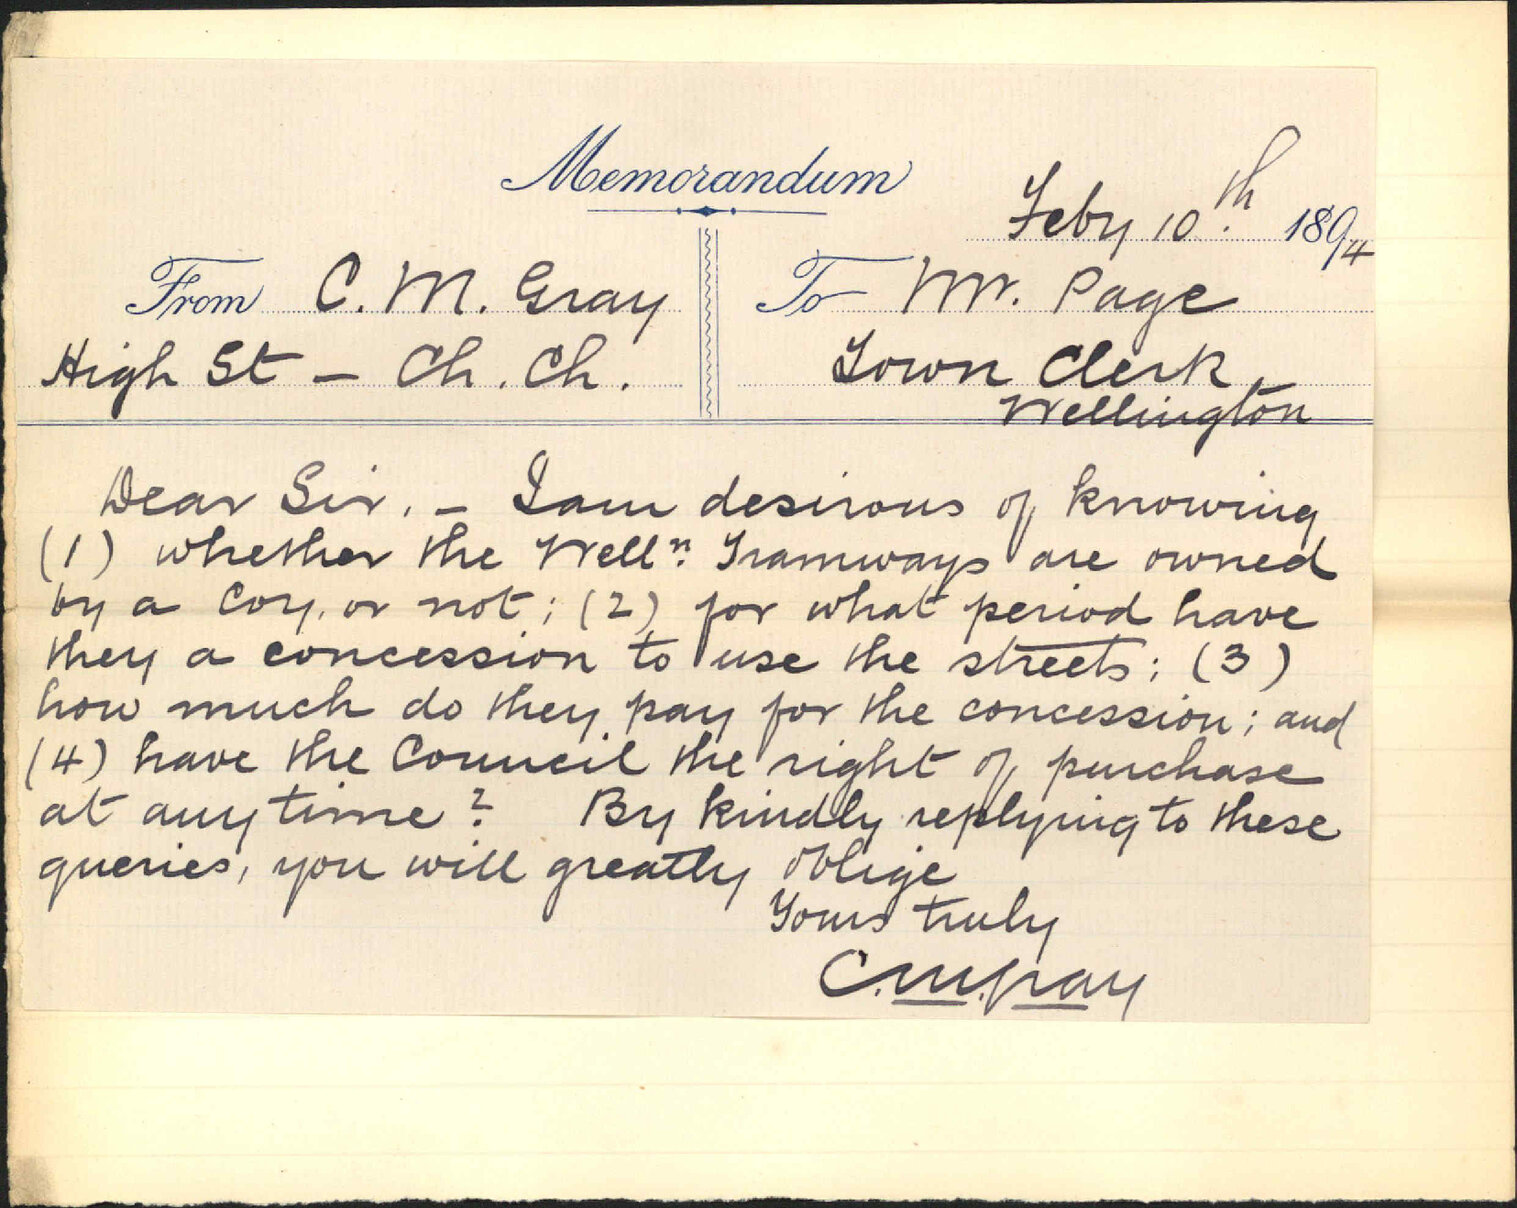 Memorandum
Feby 10th. 1894
From C. M. Gray
High St – Ch. Ch.
To Mr. Page
Town Clerk,
Wellington
Dear Sir. – I am desirous of knowing
(1) whether the Welln. Tramways are owned
by a Coy. or not; (2) for what period have
they a concession to use the streets; (3)
how much do they pay for the concession; and
(4) have the Council the right of purchase
at any time? By kindly replying to these
queries, you will greatly oblige
Yours truly
C. M. Gray